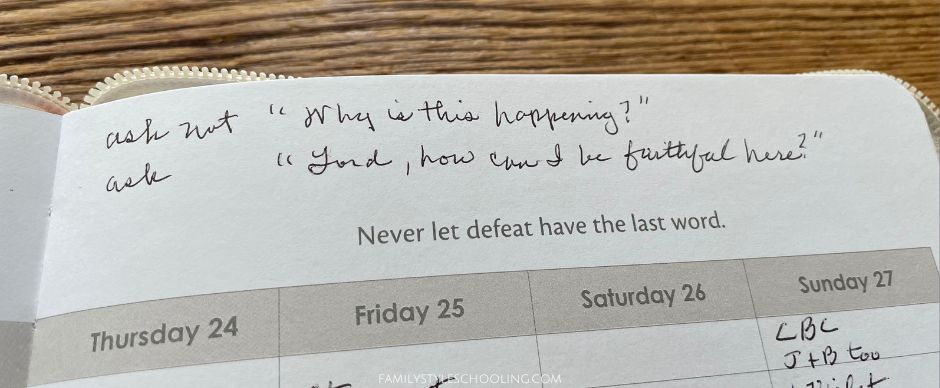 ask not "Why is this happening?"
ask "Lord, how can I be faithful here?"
Never let defeat have the last word.
Thursday 24 Friday 25 Saturday 26 Sunday 27
CBC
J+B too
FAMILYSTYLESCHOOLING.COM